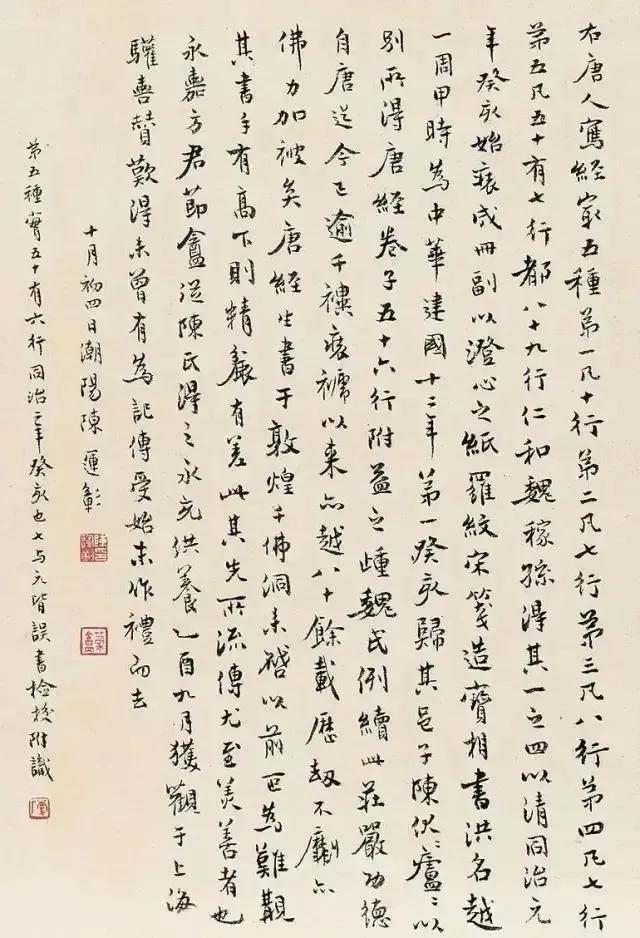 右唐人寫經家五種第一凡十行第二凡七行第三凡八行第四凡七行
第五凡五十有七行都八十九行仁和魏稼孫得其一之四以清同治元
年癸亥始裝成冊副以澄心之紙羅紋宋箋造寶相書洪名越
一周甲時為中華建國十二年第一癸亥歸其邑子陳伏廬〻以
別所得唐經卷子五十六行附益之踵魏氏例續此莊嚴功德
自唐迄今已逾千禩裝褫以来亦越八十餘載歷劫不劘亦
佛力加被矣唐經生書于敦煌千佛洞未啓以前叵為難覯
其書手有高下則精麤有差此其先所流傳尤至美善者也
永嘉方君節盦從陳氏得之永充供養乙酉九月獲觀于上海
驩喜贊歎得未曾有為記傳受始末作禮而去
十月初四日潮陽陳運彰
第五種實五十有六行同治二年癸亥也七与元皆誤書檢校附識